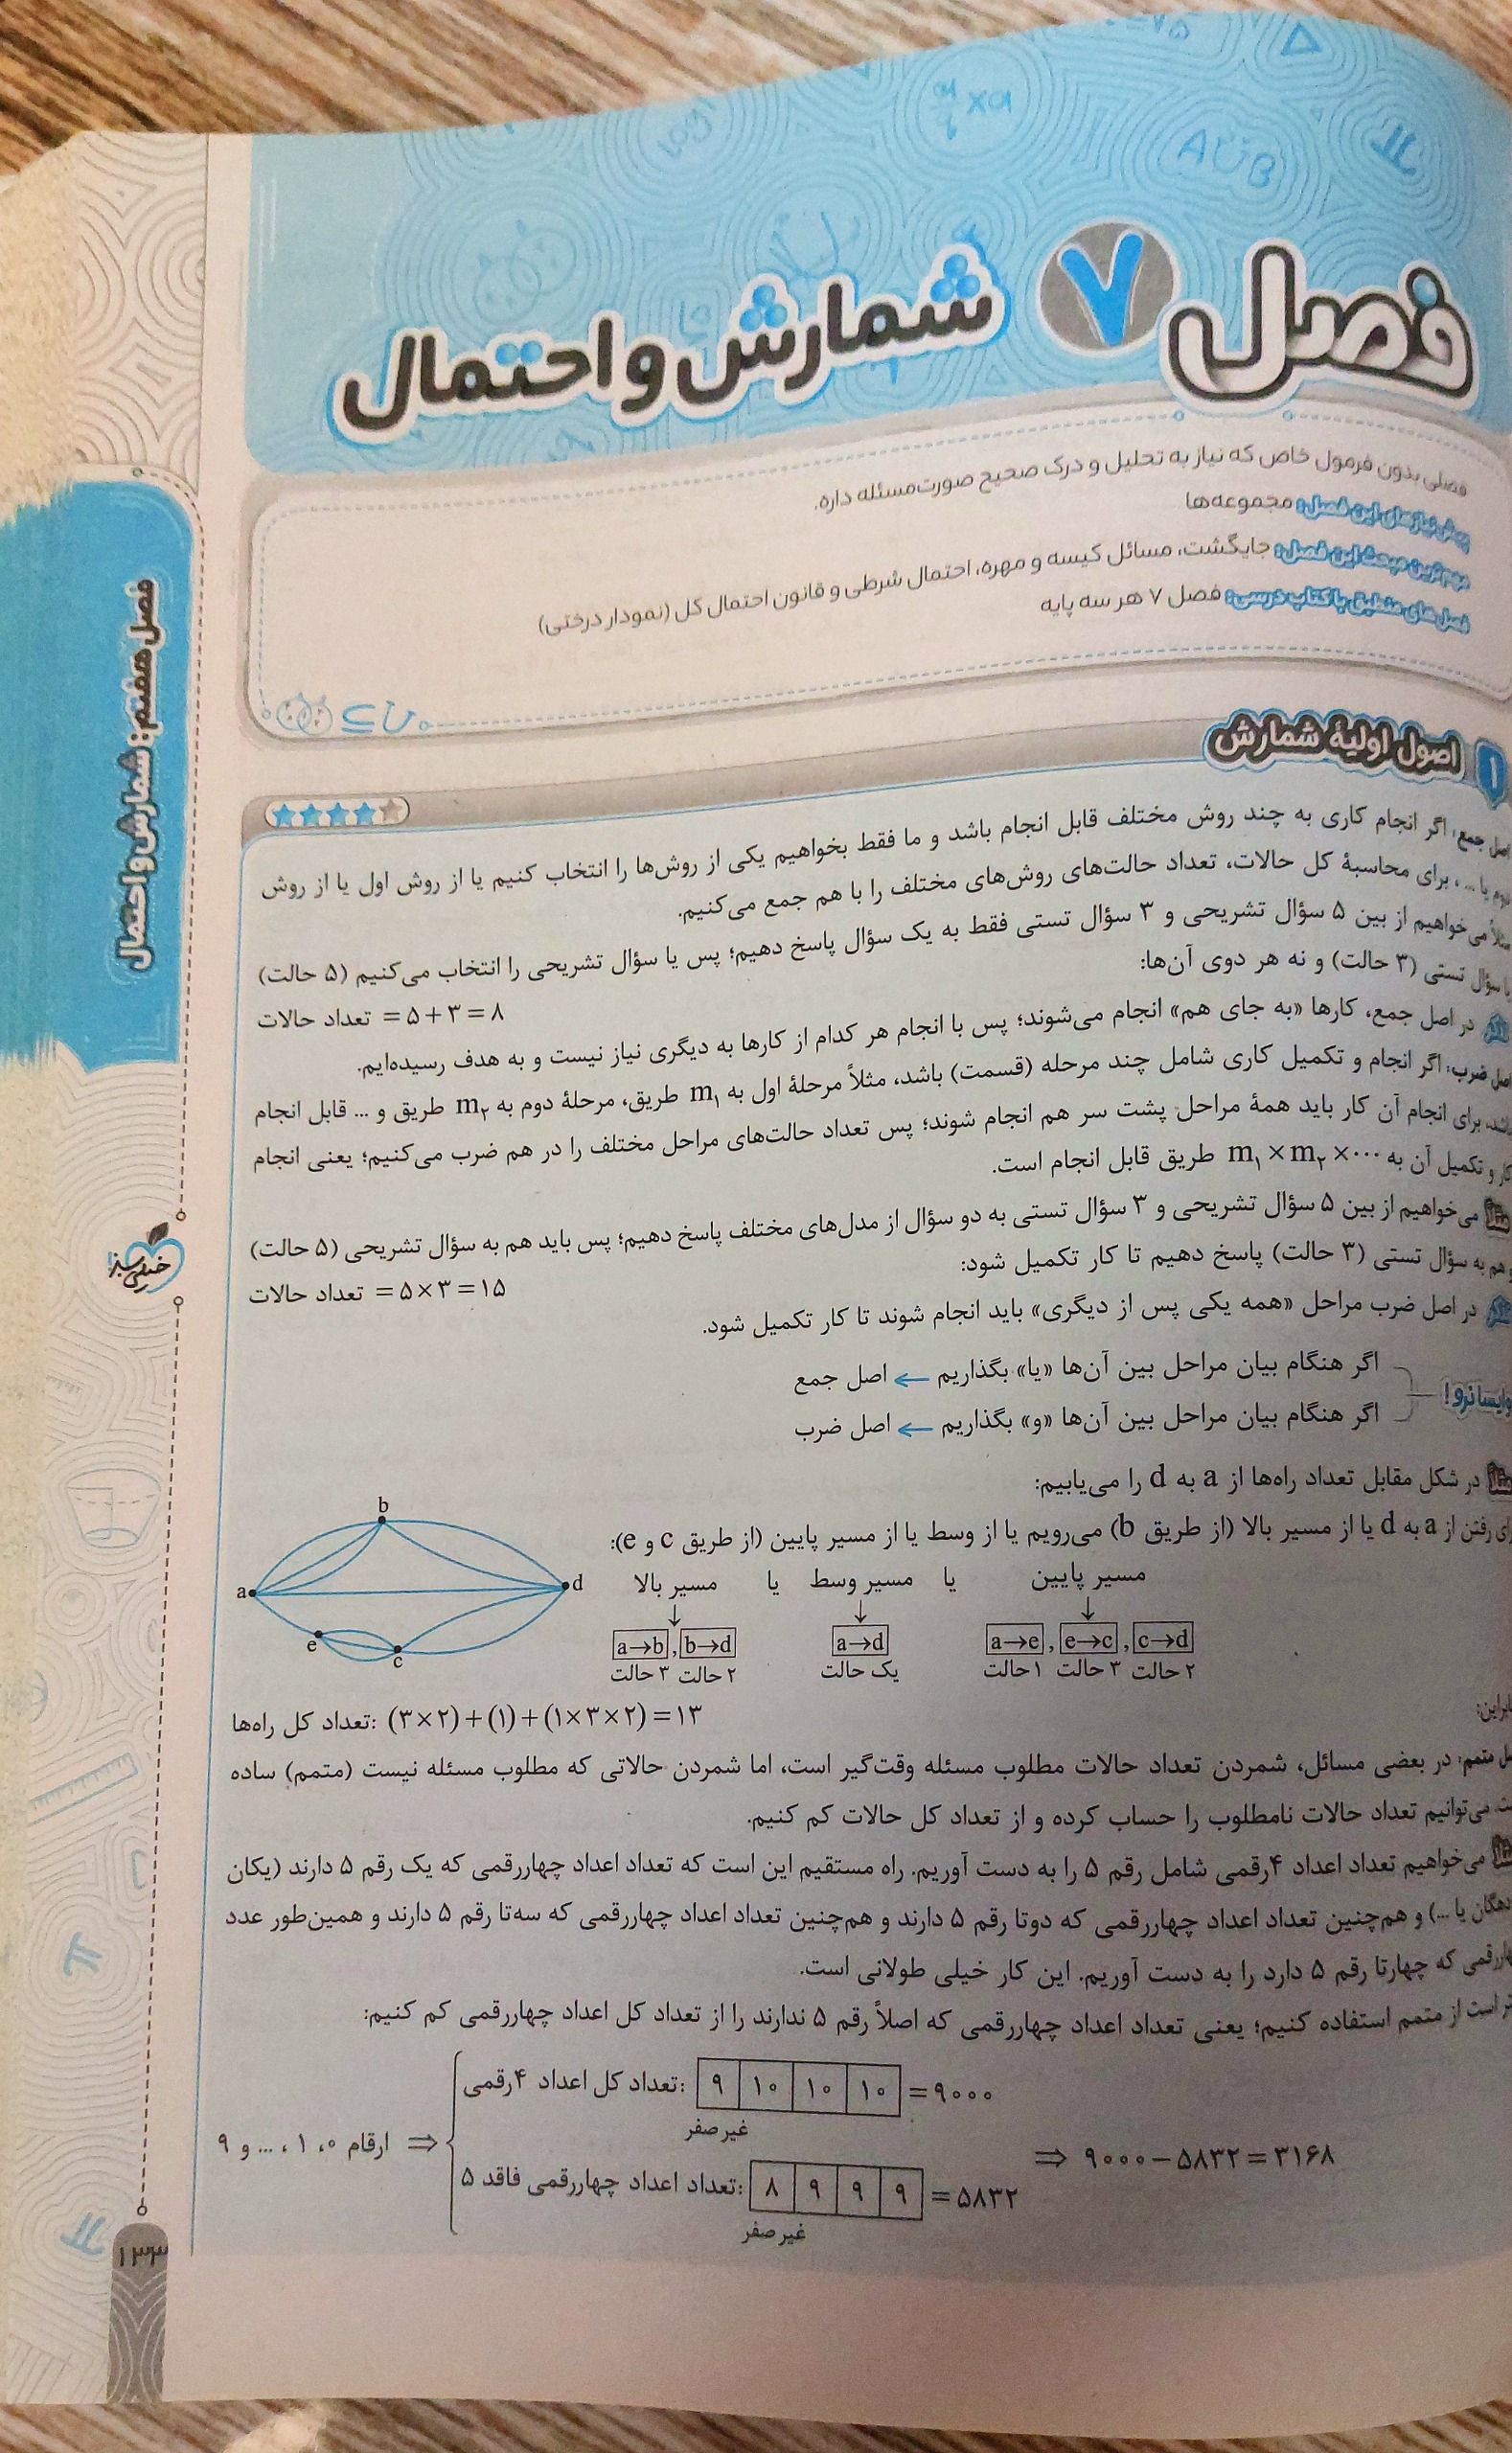 فصل ۷ شمارش و احتمال
فصلی بدون فرمول خاص که نیاز به تحلیل و درک صحیح صورت‌مسئله داره.
پیش‌نیازهای این فصل: مجموعه‌ها
مهم‌ترین مبحث این فصل: جایگشت، مسائل کیسه و مهره، احتمال شرطی و قانون احتمال کل (نمودار درختی)
فصل‌های منطبق با کتاب درسی: فصل ۷ هر سه پایه
۱ اصول اولیهٔ شمارش
اصل جمع: اگر انجام کاری به چند روش مختلف قابل انجام باشد و ما فقط بخواهیم یکی از روش‌ها را انتخاب کنیم یا از روش اول یا از روش
دوم یا ...، برای محاسبهٔ کل حالات، تعداد حالت‌های روش‌های مختلف را با هم جمع می‌کنیم.
مثلاً می‌خواهیم از بین ۵ سؤال تشریحی و ۳ سؤال تستی فقط به یک سؤال پاسخ دهیم؛ پس یا سؤال تشریحی را انتخاب می‌کنیم (۵ حالت)
یا سؤال تستی (۳ حالت) و نه هر دوی آن‌ها:
تعداد حالات = ۵+۳=۸
در اصل جمع، کارها «به جای هم» انجام می‌شوند؛ پس با انجام هر کدام از کارها به دیگری نیاز نیست و به هدف رسیده‌ایم.
اصل ضرب: اگر انجام و تکمیل کاری شامل چند مرحله (قسمت) باشد، مثلاً مرحلهٔ اول به m₁ طریق، مرحلهٔ دوم به m₂ طریق و ... قابل انجام
باشد، برای انجام آن کار باید همهٔ مراحل پشت سر هم انجام شوند؛ پس تعداد حالت‌های مراحل مختلف را در هم ضرب می‌کنیم؛ یعنی انجام
کار و تکمیل آن به m₁×m₂×⋯ طریق قابل انجام است.
می‌خواهیم از بین ۵ سؤال تشریحی و ۳ سؤال تستی به دو سؤال از مدل‌های مختلف پاسخ دهیم؛ پس باید هم به سؤال تشریحی (۵ حالت)
و هم به سؤال تستی (۳ حالت) پاسخ دهیم تا کار تکمیل شود:
تعداد حالات = ۵×۳=۱۵
در اصل ضرب مراحل «همه یکی پس از دیگری» باید انجام شوند تا کار تکمیل شود.
وایسا نرو!
اگر هنگام بیان مراحل بین آن‌ها «یا» بگذاریم ← اصل جمع
اگر هنگام بیان مراحل بین آن‌ها «و» بگذاریم ← اصل ضرب
در شکل مقابل تعداد راه‌ها از a به d را می‌یابیم:
از a به d یا از مسیر بالا (از طریق b) می‌رویم یا از وسط یا از مسیر پایین (از طریق c و e):
مسیر بالا یا مسیر وسط یا مسیر پایین
a→b , b→d a→d a→e , e→c , c→d
۳ حالت ۲ حالت یک حالت ۱ حالت ۳ حالت ۲ حالت
a b d e c
تعداد کل راه‌ها: (۳×۲)+(۱)+(۱×۳×۲)=۱۳
متمم: در بعضی مسائل، شمردن تعداد حالات مطلوب مسئله وقت‌گیر است، اما شمردن حالاتی که مطلوب مسئله نیست (متمم) ساده
می‌توانیم تعداد حالات نامطلوب را حساب کرده و از تعداد کل حالات کم کنیم.
می‌خواهیم تعداد اعداد ۴رقمی شامل رقم ۵ را به دست آوریم. راه مستقیم این است که تعداد اعداد چهاررقمی که یک رقم ۵ دارند (یکان
یا ...) و هم‌چنین تعداد اعداد چهاررقمی که دوتا رقم ۵ دارند و هم‌چنین تعداد اعداد چهاررقمی که سه‌تا رقم ۵ دارند و همین‌طور عدد
که چهارتا رقم ۵ دارد را به دست آوریم. این کار خیلی طولانی است.
است از متمم استفاده کنیم؛ یعنی تعداد اعداد چهاررقمی که اصلاً رقم ۵ ندارند را از تعداد کل اعداد چهاررقمی کم کنیم:
تعداد کل اعداد ۴رقمی: ۹ ۱۰ ۱۰ ۱۰ =۹۰۰۰
غیر صفر
ارقام ۰، ۱، ... و ۹ ⇒ ⇒ ۹۰۰۰−۵۸۳۲=۳۱۶۸
تعداد اعداد چهاررقمی فاقد ۵: ۸ ۹ ۹ ۹ =۵۸۳۲
غیر صفر
فصل هفتم: شمارش و احتمال
خیلی سبز
۱۳۳